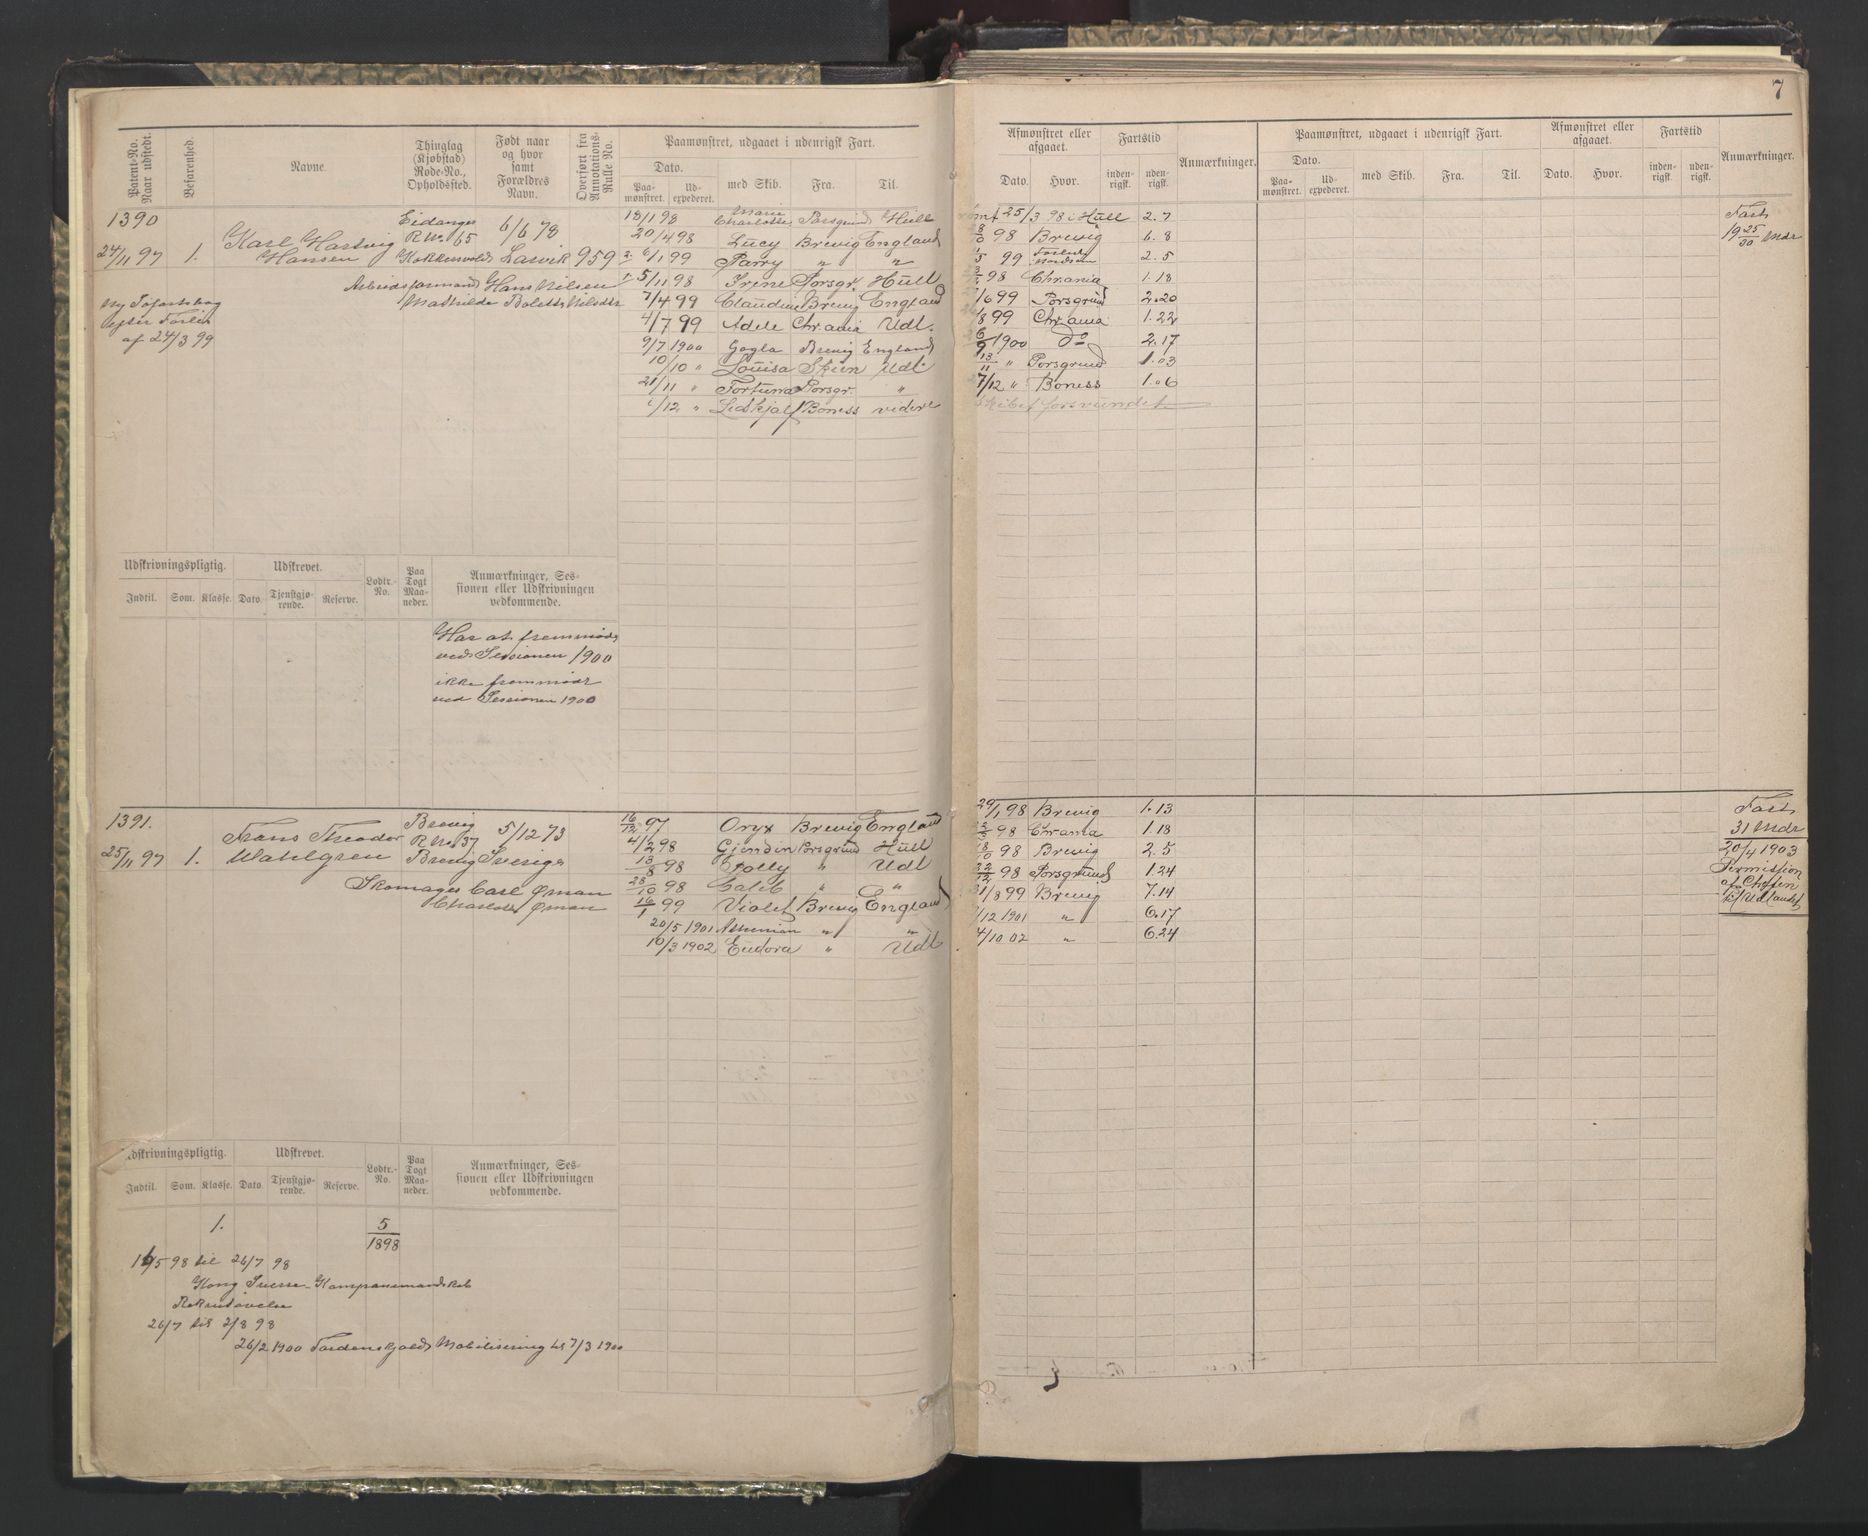 7
Patent-No. Naar udstedt.
Befarenhed.
Navne.
Thinglag (Kjøbstad) Rode-No., Opholdssted.
Født naar og hvor samt Forældres Navn.
Overført fra Annotations-Rulle No.
Paamønstret, udgaaet i udenrigsk Fart.
Dato.
Paa-mønstret.
Ud-expederet.
med Skib.
Fra.
Til.
Afmønstret eller afgaaet.
Dato.
Hvor.
Fartstid
inden-rigsk.
uden-rigsk.
Anmærkninger.
Paamønstret, udgaaet i udenrigsk Fart.
Dato.
Paa-mønstret.
Ud-expederet.
med Skib.
Fra.
Til.
Afmønstret eller afgaaet.
Dato.
Hvor.
Fartstid
inden-rigsk.
uden-rigsk.
Anmærkninger.
1390
24/11 97 1. Karl Hartvig Hansen
Eidanger R No. 65
6/6 78 Larvik 959
Arbeidsformand Hans Nilsen
Mathilde
Ny Søfartsbog
efter Forlis
af 24/3 99
18/1 98 Marie Charlotte Porsgrund Hull 25/3 98 i Hull 2. 7
20/4 98 Lucy Brevig England 98 Brevig 6. 8
6/1 99 Parry " " 99 2. 5
5/11 98 Irene Porsgr. Hull 98 Chrania 1. 18
7/4 99 Claudine Brevig England 99 Porsgrund 2. 20
4/7 99 Adele Chrania Udl. 99 Chrania 1. 22
9/7 1900 Gogla Brevig England 1900 do 2. 17
10/10 " Louisa Skien Udl. 13/11 " Porsgrund 1. 03
21/11 " Fortuna Porsgr. " 7/12 " Boness 1. 06
/12 " Lidskjalf Boness videre Skibet forsvundet
Fart
19 25/30 Mdr
Udskrivningspligtig.
Indtil.
Som.
Klasse.
Udskrevet.
Dato.
Tjenstgjø-rende.
Reserve.
Lodtr.-No.
Paa Togt Maa-neder.
Anmærkninger, Ses-
sionen eller Udskrivningen
vedkommende.
Har at fremmøde
ved Sessionen 1900
ikke fremmødt
ved Sessionen 1900
1391.
25/11 97 1. Frans Theodor Wahlgren
Brevig R No 37 Brevig
5/12 73 Sverige
Skomager Carl Øman
Charlotte Øman
16/12 97 Oryx Brevig England 29/1 98 Brevig 1. 13
4/2 98 Gjendin Porsgrund Hull 98 Chrania 1. 18
13/8 98 Polly " Udl 18/10 98 Brevig 2. 5
28/10 98 Caleb " " 22/12 98 Porsgrund 1 24
16/1 99 Violet Brevig England 31/8 99 Brevig 7. 14
20/5 1901 Athenian " " /12 1901 " 6. 17
10/3 1902 Eudora " Udl 4/10 02 " 6. 24
Fart
31 Mdr
20/4 1903
Permission
af Chefen
til Udlandet
Udskrivningspligtig.
Indtil.
Som.
Klasse.
Udskrevet.
Dato.
Tjenstgjø-rende.
Reserve.
Lodtr.-No.
Paa Togt Maa-neder.
Anmærkninger, Ses-
sionen eller Udskrivningen
vedkommende.
1. 5/1898
16/5 98 til 26/7 98
Kong Sverre
Rekrutøvelse
26/7 til 2/8 98
26/2 1900 Tordenskjold Mobilisering til 7/3 1900